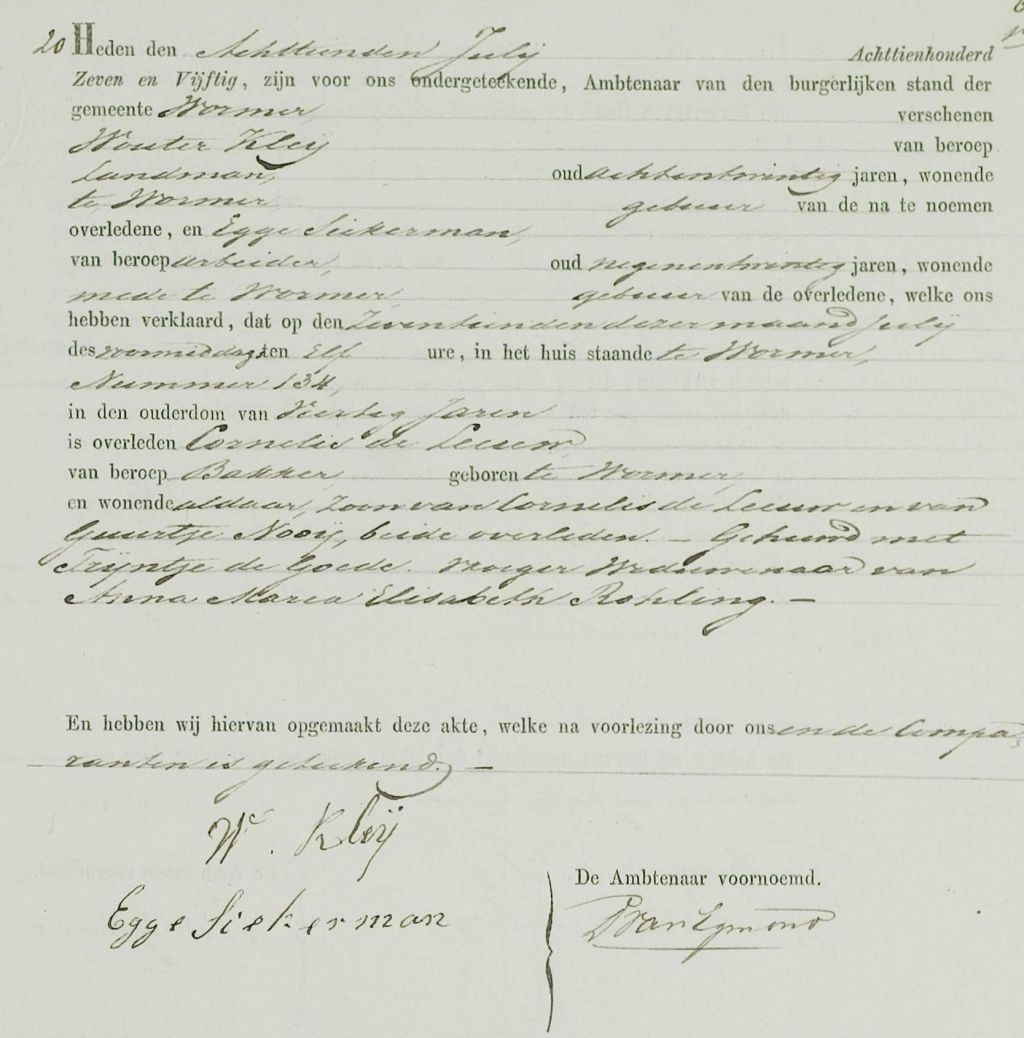 20 Heden den Achttienden Julij Achttienhonderd
Zeven en Vijftig, zijn voor ons ondergeteekende, Ambtenaar van den burgerlijken stand der
gemeente Wormer verschenen
Wouter Kleij van beroep
Landman, oud achtentwintig jaren, wonende
te Wormer gebuur van de na te noemen
overledene, en Egge Siekerman,
van beroep arbeider, oud negenentwintig jaren, wonende
mede te Wormer, gebuur van de overledene, welke ons
hebben verklaard, dat op den Zeventienden dezer maand Julij
des voormiddags ten Elf ure, in het huis staande te Wormer,
Nummer 134,
in den ouderdom van Veertig Jaren
is overleden Cornelis de Leeuw
van beroep Bakker geboren te Wormer,
en wonende aldaar, Zoon van Cornelis de Leeuw en van
Guurtje Nooij, beide overleden. — Gehuwd met
Trijntje de Goede. vroeger Weduwenaar van
Anna Maria Elisabeth Rohling. —
En hebben wij hiervan opgemaakt deze akte, welke na voorlezing door ons en de Compa,
ranten is geteekend. —
W. Kleij
De Ambtenaar voornoemd.
Egge Siekerman
P van Egmond